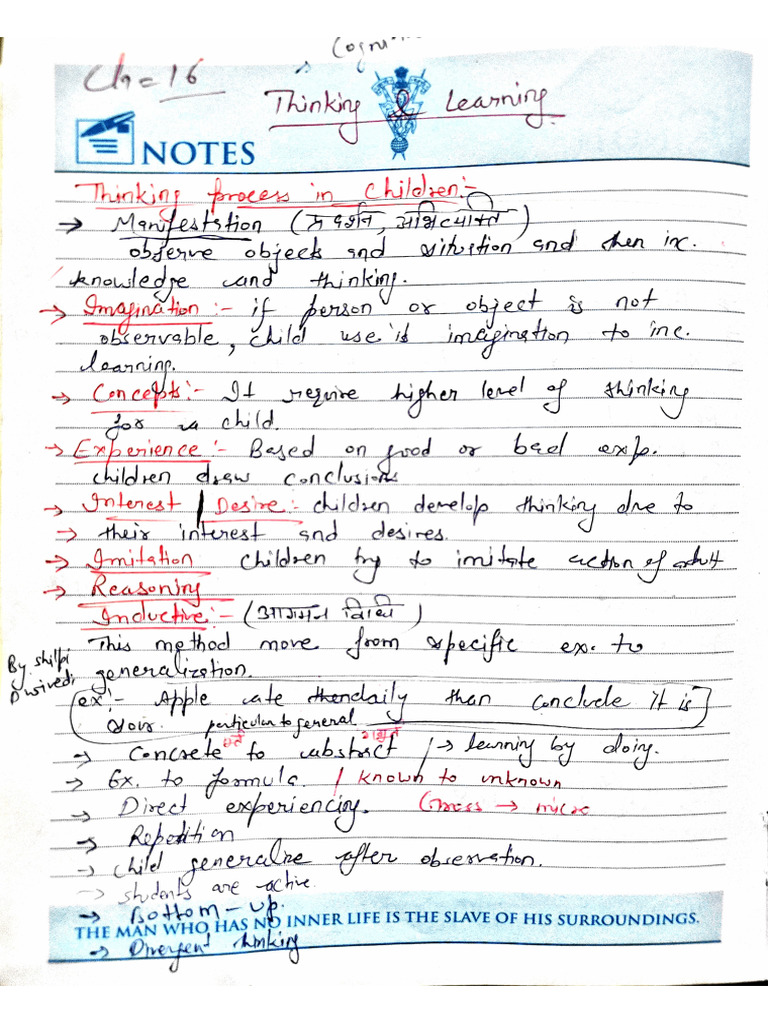 Cogni
Ch = 16
Thinking & Learning
NOTES
Thinking process in children:-
→ Manifestation (प्रदर्शन, अभिव्यक्ति)
observe objects and situation and then inc.
knowledge and thinking.
→ Imagination :- if person or object is not
observable, child use is imagination to inc.
learning.
→ Concepts:- It require higher level of thinking
for a child.
→ Experience :- Based on good or bad exp.
children draw conclusions
→ Interest / Desire:- children develop thinking due to
→ their interest and desires.
→ Imitation children try to imitate action of adult
→ Reasoning
Inductive:- (आगमन विधि)
This method move from specific ex. to
generalization.
By shilpi
Dwivedi
ex:- Apple ate daily than conclude It is
sour. particular to general
→ Concrete to abstract / → learning by doing.
→ Ex. to formula. / known to unknown
→ Direct experiencing. Gross → micro
→ Repetition
→ child generalize after observation.
→ students are active.
→ Bottom-up.
THE MAN WHO HAS NO INNER LIFE IS THE SLAVE OF HIS SURROUNDINGS.
→ Divergent thinking